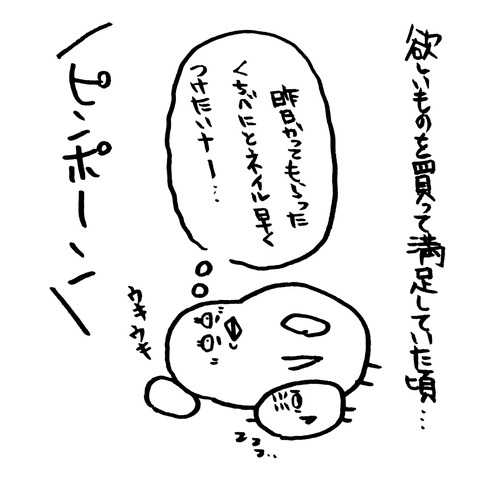 欲しいものを買って満足していた頃…
昨日かってもらった
くちべにとネイル早く
つけたいナー…
ウキウキ
ピンポーン